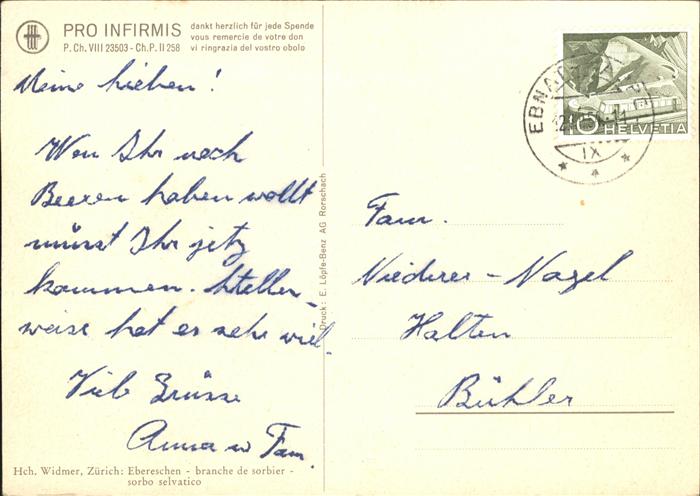 PRO INFIRMIS
P. Ch. VIII 23503 - Ch. P. II 258
dankt herzlich für jede Spende
vous remercie de votre don
vi ringrazia del vostro obolo
Meine Lieben!
Wen Ihr noch
Beeren haben wollt
müsst Ihr jetz
kommen. Stellen-
weise hat es sehr viel.
Viele Grüsse
Anna u Fam.
Hch. Widmer, Zürich: Ebereschen - branche de sorbier -
sorbo selvatico
Druck: E. Löpfe-Benz AG Rorschach
HELVETIA
EBNA
IX
Fam.
Niederer-Nagel
Halten
Bühler